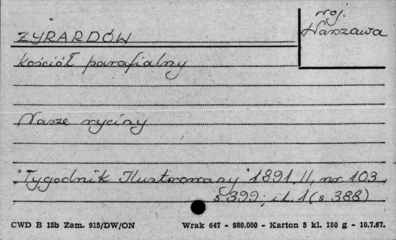 woj.
Warszawa
ZYRARDÓW
Kościół parafialny
Nasze ryciny
"Tygodnik Ilustrowany" 1891, II, nr 103
s. 399; il. 1 (s. 388)
CWD B 15b Zam. 915/DW/ON Wrak 647 - 980.000 - Karton 5 kl. 180 g - 10.7.67.